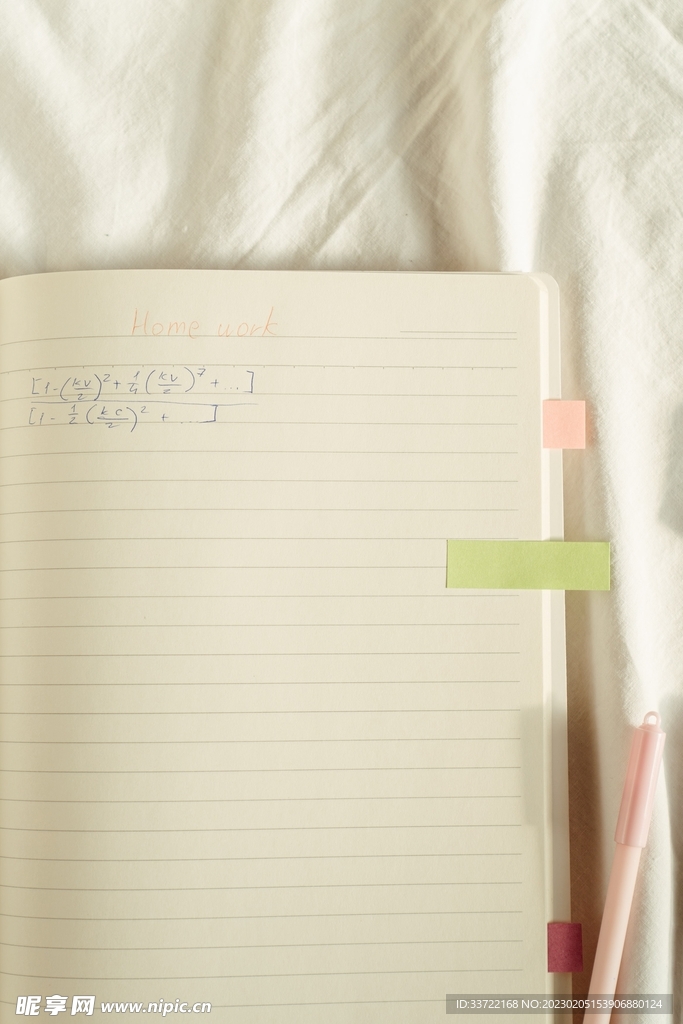 Home work
[1-(kv/2)²+1/4(kv/2)⁷+...]
[1-1/2(kc/2)²+...]
昵享网 www.nipic.cn
ID:33722168 NO:20230205153906880124